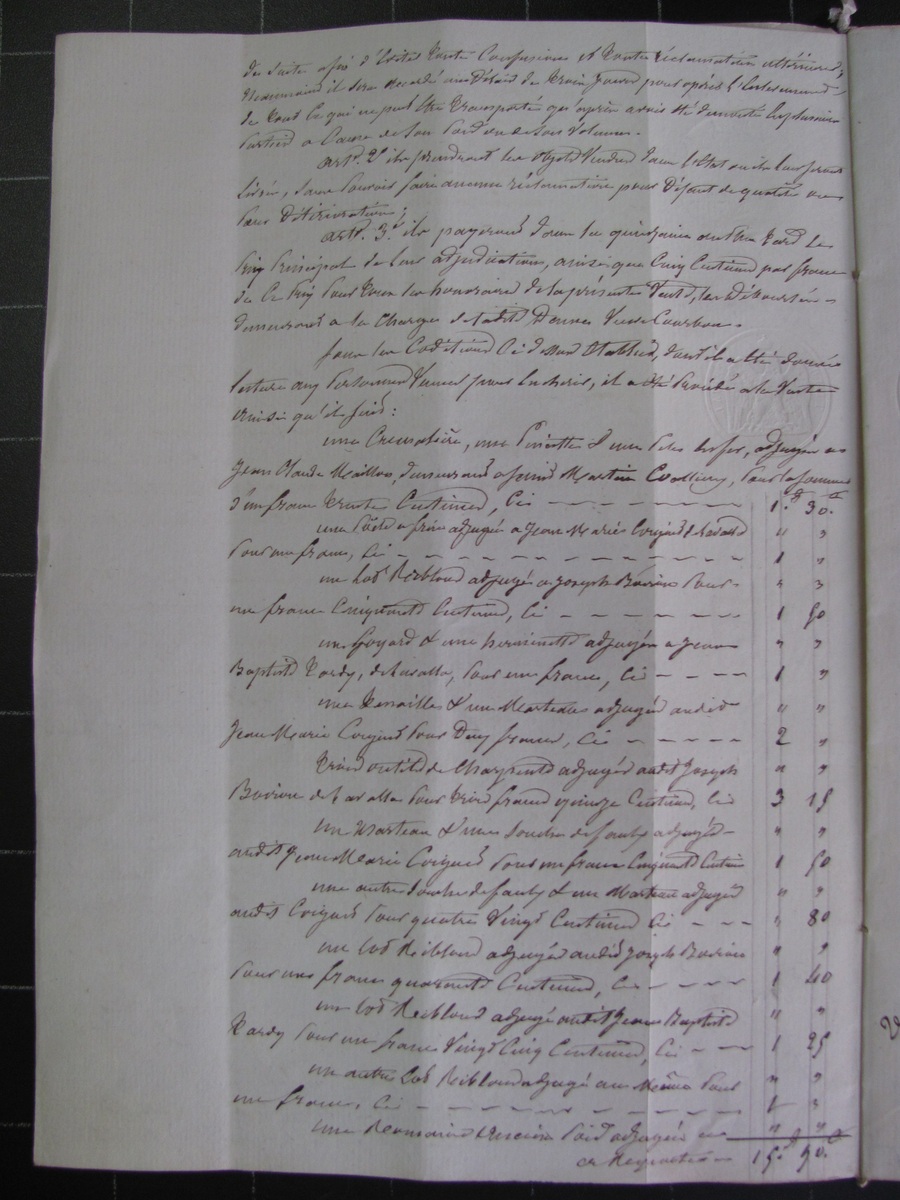 de suite afin d'éviter toute confusion et toute réclamation ultérieure,
néanmoins il sera accordé un délai de trois jours pour opérer l'enlèvement
de tout ce qui ne peut être transporté qu'après avoir été démonté en plusieurs
parties a cause de son poid ou de son volume.
art. 2e ils prendront les objets vendus dans l'état où ils leur seront
livrés, sans pouvoir faire aucune réclamation pour défaut de qualité ou
pour détérioration;
art. 3e ils payeront dans la quinzaine au plus tard le
prix principal de leur adjudication, ainsi que cinq centimes par franc
de ce prix pour tous les honoraires de la présente vente, les déboursés
demeurant a la charge de ladite Veuve Courbon.
Sous les conditions ci dessus établies, dont il a été donné
lecture aux personnes venues pour enchérir, il a été procédé a la vente
ainsi qu'il suit:
une cremalière, une & une pelle en fer, adjugées au
Jean Claude demeurant a Saint Martin pour la somme
d'un franc trente centimes, ci — 1.f 30.c
une poële a frire adjugée a Jean Marie " "
pour un franc, ci — 1 "
un lot adjugé a Joseph Boiron pour " "
un franc cinquante centimes, ci — 1 50
un goyard & une herminette adjugés a Jean " "
Baptiste Tardy, de Lavalla, pour un franc, ci — 1 "
une & un marteau adjugés audit " "
Jean Marie pour deux francs, ci — 2 "
trois outils de charpente adjugés audit Joseph " "
Boiron de Lavalla pour trois francs quinze centimes, ci 3 15
un marteau & une de faulx adjugés " "
audit Jean Marie pour un franc cinquante centimes 1 50
une autre de faulx & un marteau adjugés " "
audit pour quatre vingt centimes ci — " 80
un lot adjugé audit Joseph Boiron " "
pour un franc quarante centimes, ci — 1 40
un lot adjugé audit Jean Baptiste " "
Tardy pour un franc vingt cinq centimes, ci — 1 25
un autre lot adjugé au même pour " "
un franc, ci — 1 "
une Romaine poid adjugée au " "
a Reporter — 15.f 90.c